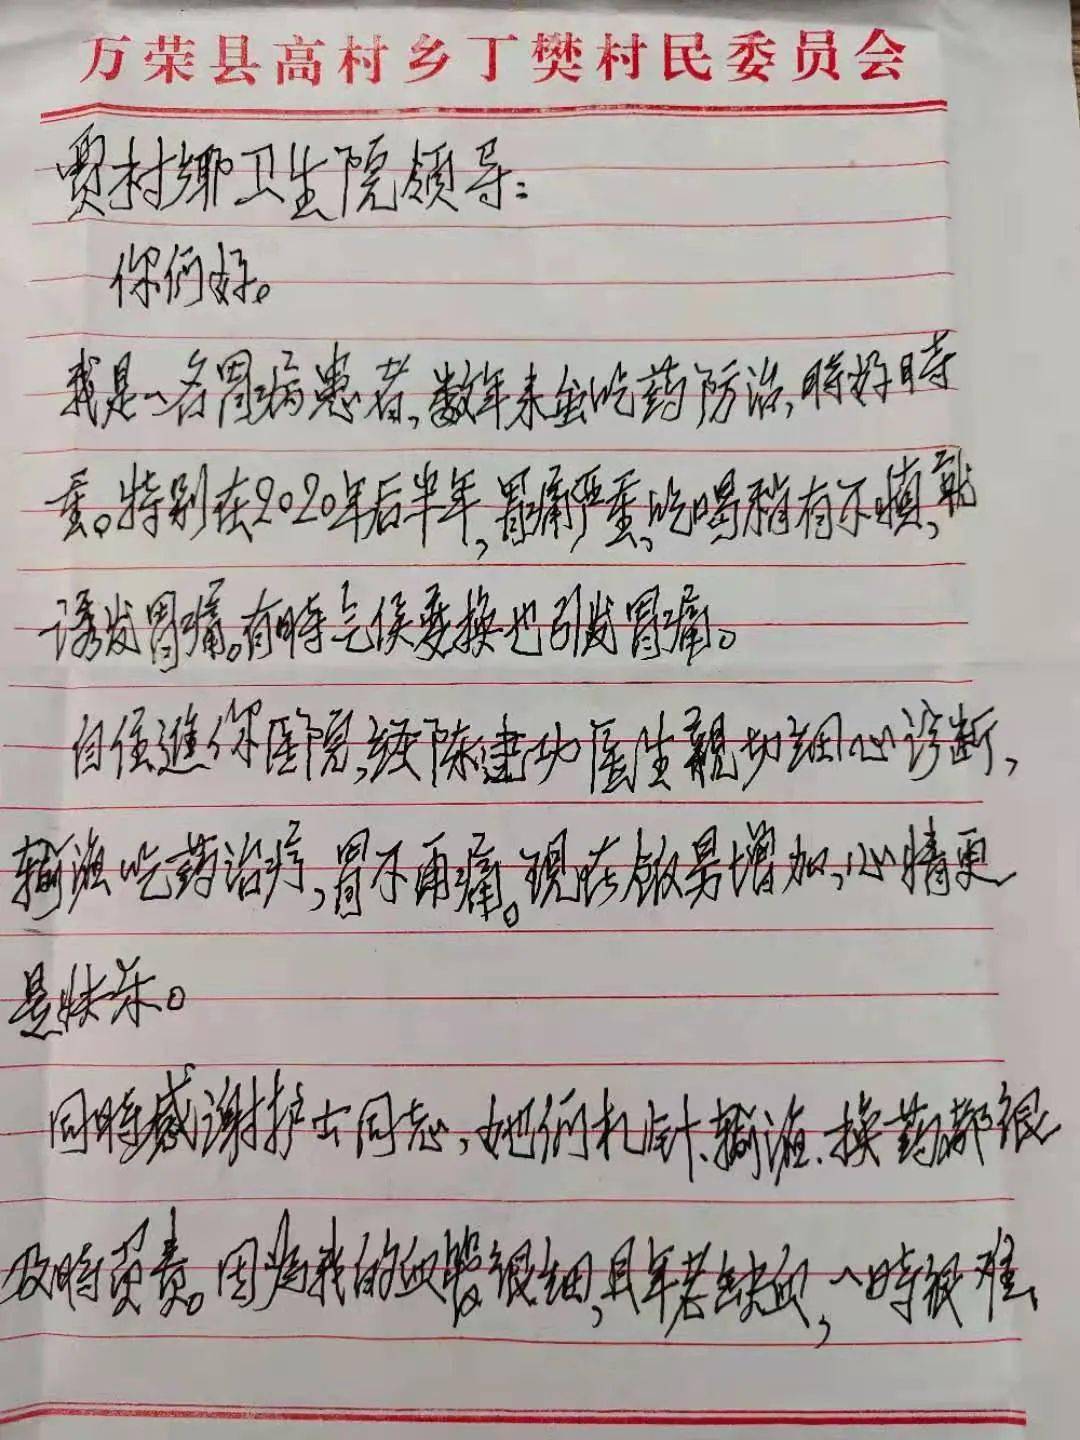 万荣县高村乡丁樊村民委员会
贾村乡卫生院领导：
你们好。
我是一名胃病患者，数年来虽吃药防治，時好時
重。特别在2020年后半年，胃痛严重，吃喝稍有不慎，就
诱发胃痛。有時气候变换也引发胃痛。
自住進你医院，经陈建功医生親切细心诊断，
输液吃药治疗，胃不再痛。现在饭量增加，心情更
是快乐。
同時感谢护士同志，她们扎针、输液、换药都很
及時负责。因为我的血管很细，且年老缺血，一時很难